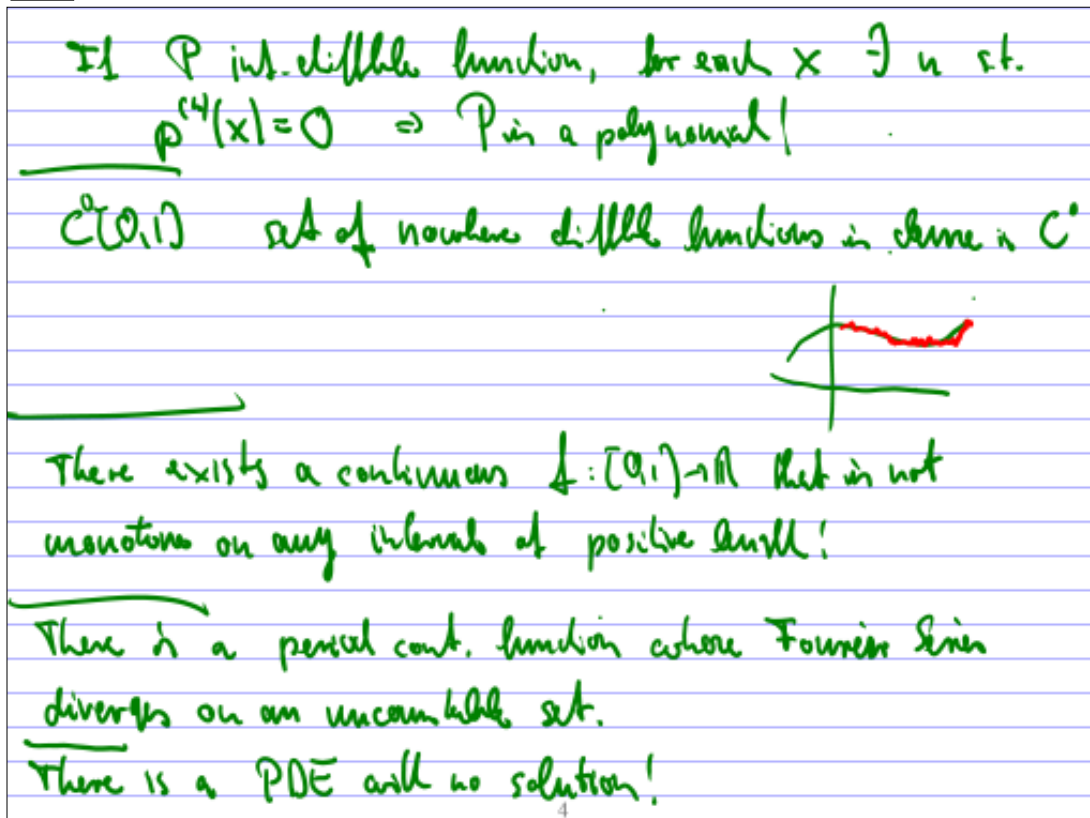 If P inf. diffble function, for each x ∃ n s.t.
p^(n)(x)=0 ⇒ P is a polynomial!
C^0[0,1] set of nowhere diffble functions is dense in C^0
There exists a continuous f:[0,1]→ℝ that is not
monotone on any intervals of positive length!
There is a period cont. function whose Fourier Series
diverges on an uncountable set.
There is a PDE with no solution!
4